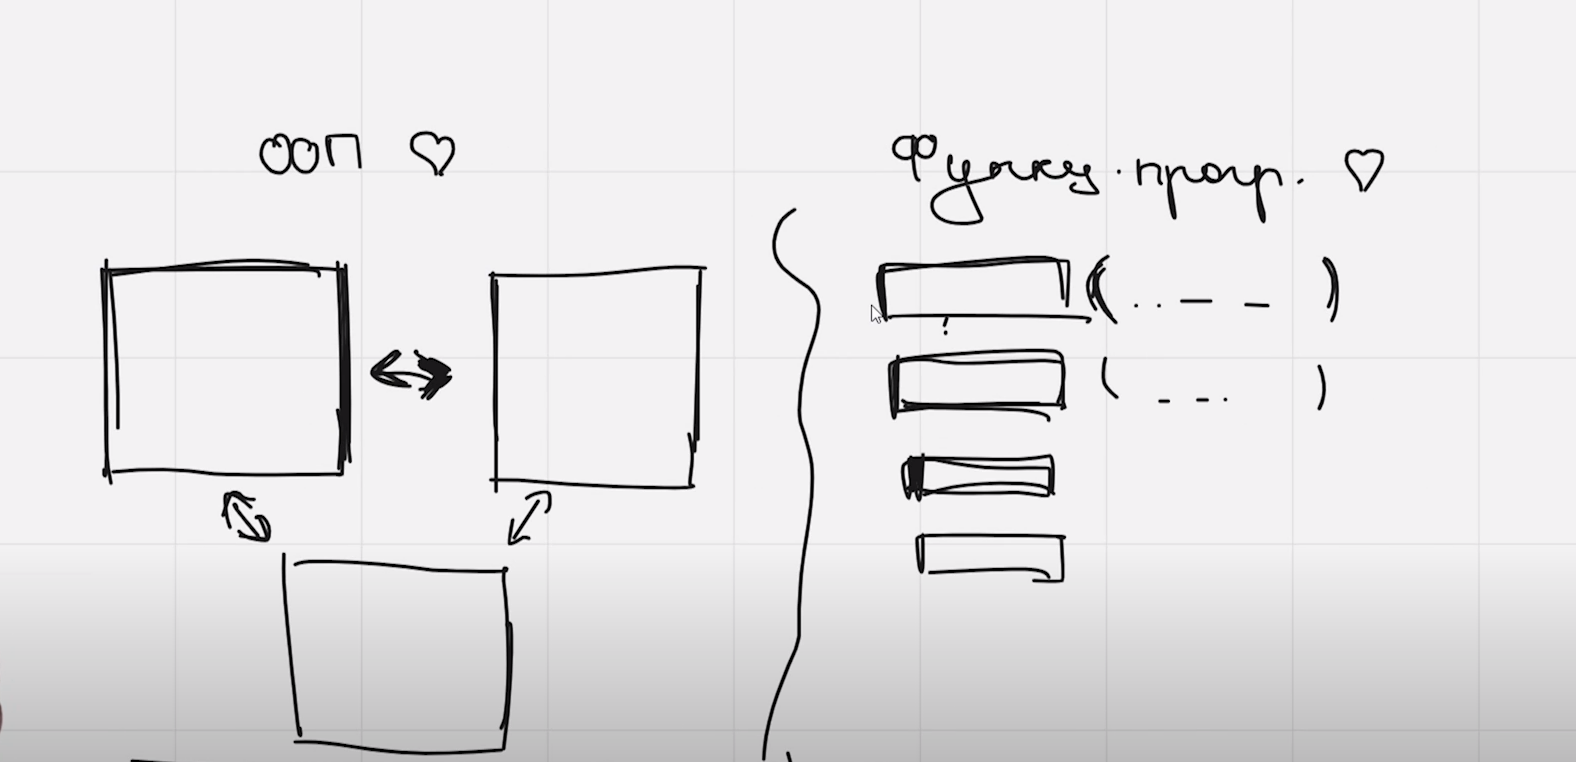 ООП
Функц. прогр.